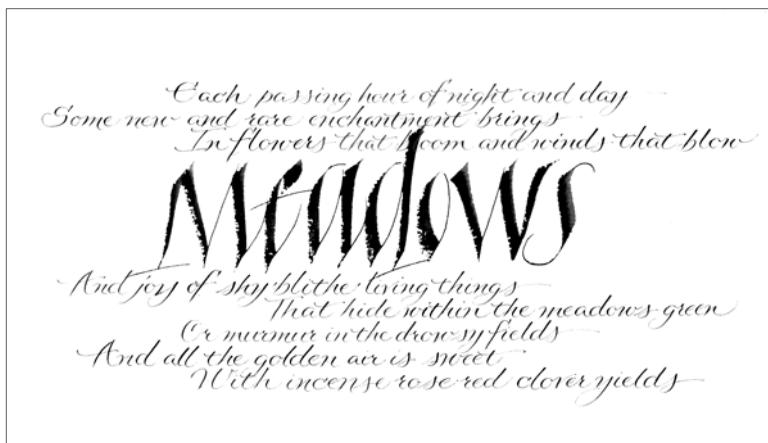 Each passing hour of night and day
Some new and rare enchantment brings
In flowers that bloom and winds that blow
Meadows
And joy of shy blithe living things
That hide within the meadows green
Or murmur in the drowsy fields
And all the golden air is sweet
With incense rose-red clover yields